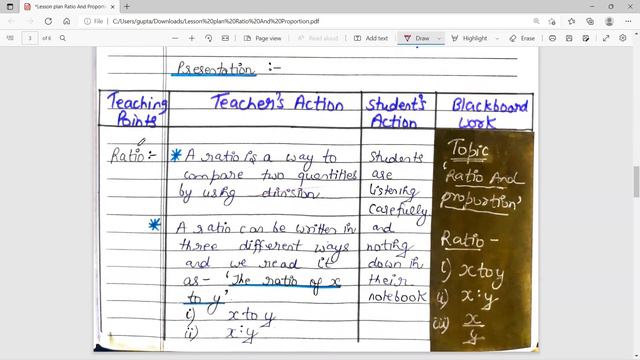 *Lesson plan Ratio And Proportion
File
C:/Users/gupta/Downloads/Lesson%20plan%20Ratio%20And%20Proportion.pdf
3 of 6
Page view
Read aloud
Add text
Draw
Highlight
Erase
Presentation :-
Teaching Points
Teacher's Action
Student's Action
Blackboard work
Ratio:-
* A ratio is a way to
compare two quantities
by using division
* A ratio can be written in
three different ways
and we read it
as - 'The ratio of x
to y'
i) x to y
ii) x:y
Students
are
listening
carefully
and
noting
down in
their
notebook
Topic
'Ratio And
proportion'
Ratio -
i) x to y
ii) x:y
iii) x/y